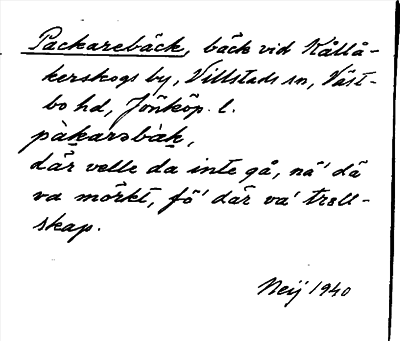 Packarebäck, bäck vid Kållå-
kerskogs by, Villstads sn, Väst-
bo hd, Jönköp. l.
pàkarəbàk,
där velle da inte gå, nä' dä
va mörkt, fö' där va' trell-
skap.
Neij 1940